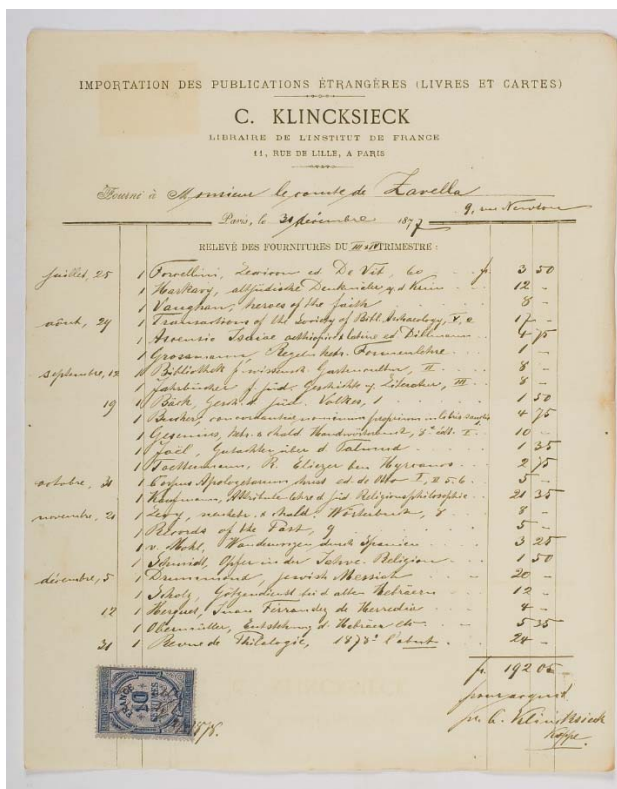 IMPORTATION DES PUBLICATIONS ÉTRANGÈRES (LIVRES ET CARTES)
C. KLINCKSIECK
LIBRAIRE DE L'INSTITUT DE FRANCE
11, RUE DE LILLE, A PARIS
Fourni à Monsieur le comte de Zavella
9, rue Newton
Paris, le 31 décembre 1877
RELEVÉ DES FOURNITURES DU III & IV TRIMESTRE :
juillet, 25 1 Forcellini, Lexicon ed. De Vit, 60 f. 3 50
1 Harkavy, altjüdische Denkmäler a. d. Krim 12 –
1 Vaughan, heroes of the faith 8 –
août, 29 1 Transactions of the Society of Bibl. Archaeology, V, 2 17 –
1 Ascensio Isaiae aethiopice & latine ed. Dillmann 4 75
1 Grossmann, Formenlehre 1 –
septembre, 12 1 Bibliothek f. wissensch. Gartencultur, II 8 –
1 Jahrbücher f. jüd. Geschichte u. Literatur, III 8 –
19 1 Bäck, Gesch. d. jüd. Volkes, 1 1 50
1 nominum propriorum 4 75
1 Gesenius, hebr. & chald. Handwörterbuch, 8e édit. I 10 –
1 Joël, Gutachten über d. Talmud 1 35
1 R. Eliezer ben Hyrcanos 2 75
octobre, 31 1 Corpus Apologetarum christ. ed. de Otto I, 5 –
1 Kaufmann, Attributenlehre d. jüd. Religionsphilosophie 21 35
novembre, 21 1 Levy, neuhebr. & chald. Wörterbuch, 8 –
1 Records of the Past, 9 5 –
1 v. Mohl, Wanderungen durch Spanien 3 25
1 Schmidt, Opfer in der Religion 1 50
décembre, 5 1 Drummond, jewish Messiah 20 –
1 Scholz, Götzendienst bei d. alten Hebräern 12 –
12 1 Herquet, Juan Ferrandez de Heredia 4 –
1 Obermüller, Entstehung d. Hebräer 5 35
31 1 Revue de Philologie, 1878: l'abnt. 24 –
f. 192 05
pour acquit
pr. C. Klincksieck
FRANCE
10
CENTIMES
1878.